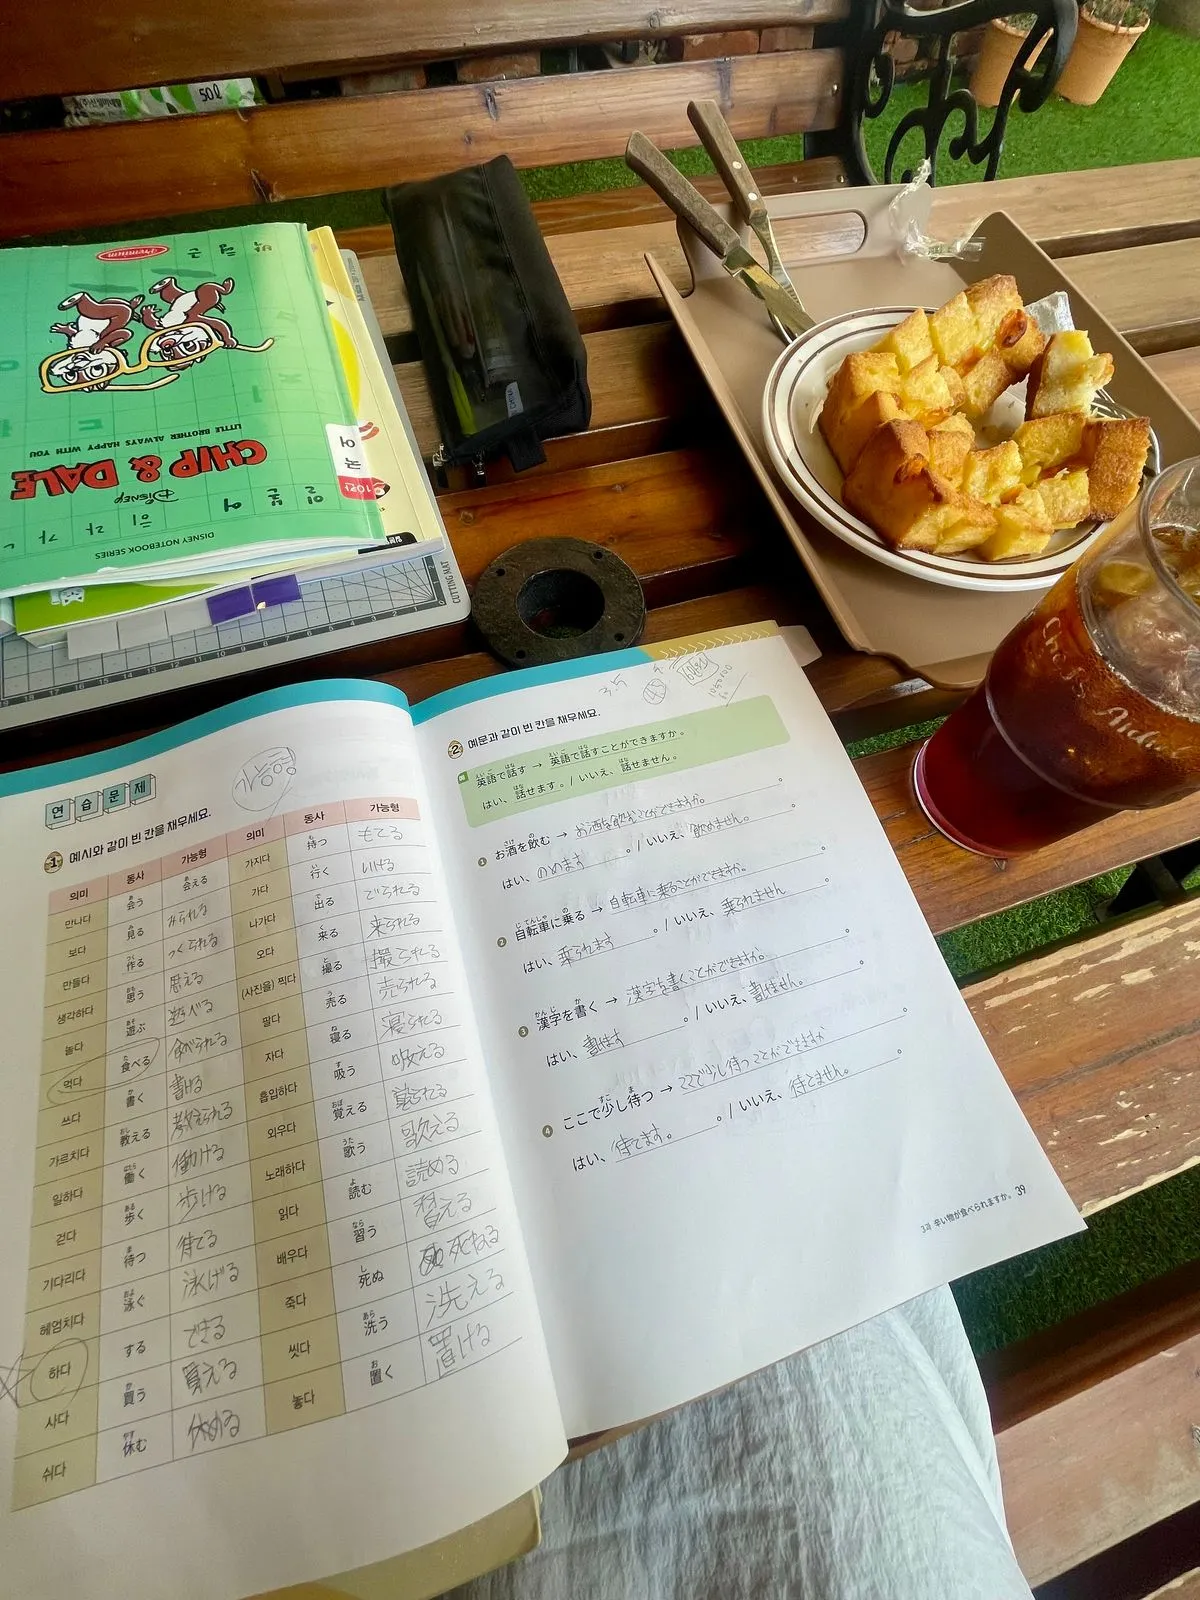 50ℓ
Premium
CHIP & DALE
LITTLE BROTHER ALWAYS HAPPY WITH YOU
DISNEY
일본어
히라가나
DISNEY NOTEBOOK SERIES
국어
10칸
CUTTING MAT
연습문제
가능형
1 예시와 같이 빈 칸을 채우세요.
의미 동사 가능형 의미 동사 가능형
만나다 会う 会える 가지다 持つ もてる
보다 見る みられる 가다 行く いける
만들다 作る つくられる 나가다 出る でられる
생각하다 思う 思える 오다 来る 来られる
놀다 遊ぶ 遊べる (사진을) 찍다 撮る 撮られる
먹다 食べる 食べられる 팔다 売る 売られる
쓰다 書く 書ける 자다 寝る 寝られる
가르치다 教える 教えられる 흡입하다 吸う 吸える
일하다 働く 働ける 외우다 覚える 覚られる
걷다 歩く 歩ける 노래하다 歌う 歌える
기다리다 待つ 待てる 읽다 読む 読める
헤엄치다 泳ぐ 泳げる 배우다 習う 習える
하다 する できる 죽다 死ぬ 死ねる
사다 買う 買える 씻다 洗う 洗える
쉬다 休む 休める 놓다 置く 置ける
2 예문과 같이 빈 칸을 채우세요.
英語で話す → 英語で話すことができますか。
はい、話せます。/ いいえ、話せません。
1 お酒を飲む → お酒を飲むことができますか。
はい、のめます。/ いいえ、飲めません。
2 自転車に乗る → 自転車に乗ることができますか。
はい、乗られます。/ いいえ、乗られません。
3 漢字を書く → 漢字を書くことができますか。
はい、書けます。/ いいえ、書けません。
4 ここで少し待つ → ここで少し待つことができますか。
はい、待てます。/ いいえ、待てません。
3과 辛い物が食べられますか。 39